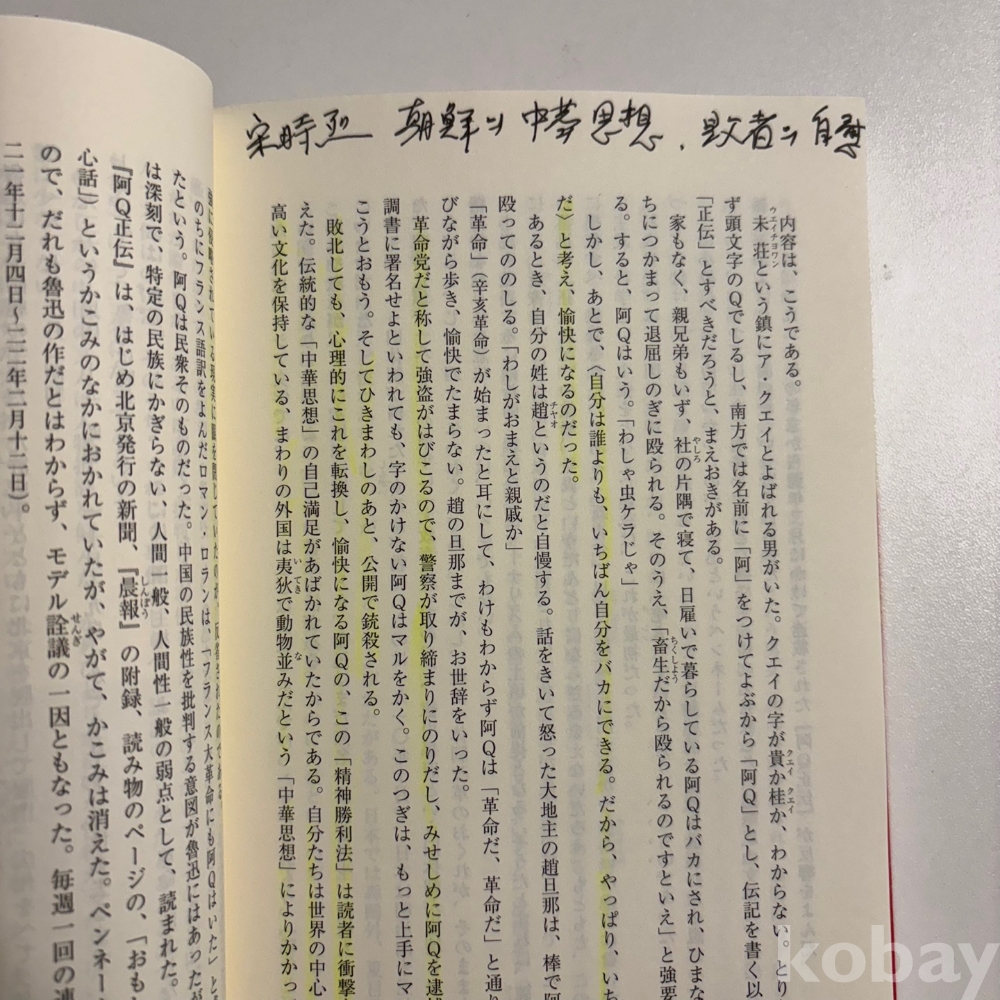 宋時烈 朝鮮의 中華思想、敗者의 自慰
内容は、こうである。
未荘という鎮にア・クエイとよばれる男がいた。クエイの字が貴か桂か、わからない。とり
ず頭文字のQでしるし、南方では名前に「阿」をつけてよぶから「阿Q」とし、伝記を書く以
「正伝」とすべきだろうと、まえおきがある。
家もなく、親兄弟もいず、社の片隅で寝て、日雇いで暮らしている阿Qはバカにされ、ひまな
ちにつかまって退屈しのぎに殴られる。そのうえ、「畜生だから殴られるのですといえ」と強要
る。すると、阿Qはいう。「わしゃ虫ケラじゃ」
しかし、あとで、〈自分は誰よりも、いちばん自分をバカにできる。だから、やっぱり、いち
だ〉と考え、愉快になるのだった。
あるとき、自分の姓は趙というのだと自慢する。話をきいて怒った大地主の趙旦那は、棒で阿
殴ってののしる。「わしがおまえと親戚か」
「革命」（辛亥革命）が始まったと耳にして、わけもわからず阿Qは「革命だ、革命だ」と通り
びながら歩き、愉快でたまらない。趙の旦那までが、お世辞をいった。
革命党だと称して強盗がはびこるので、警察が取り締まりにのりだし、みせしめに阿Qを逮捕
調書に署名せよといわれても、字のかけない阿Qはマルをかく。このつぎは、もっと上手にマ
こうとおもう。そしてひきまわしのあと、公開で銃殺される。
敗北しても、心理的にこれを転換し、愉快になる阿Qの、この「精神勝利法」は読者に衝撃
えた。伝統的な「中華思想」の自己満足があばかれていたからである。自分たちは世界の中心
高い文化を保持している、まわりの外国は夷狄で動物並みだという「中華思想」によりかかっ
のちにフランス語訳をよんだロマン・ロランは、「フランス大革命にも阿Qはいた」と
たという。阿Qは民衆そのものだった。中国の民族性を批判する意図が魯迅にはあったが
は深刻で、特定の民族にかぎらない、人間一般、人間性一般の弱点として、読まれた。
『阿Q正伝』は、はじめ北京発行の新聞、『晨報』の附録、読み物のページの、「おもし
心話」というかこみのなかにおかれていたが、やがて、かこみは消えた。ペンネーム
ので、だれも魯迅の作だとはわからず、モデル詮議の一因ともなった。毎週一回の連
二一年十二月四日〜二二年二月十二日）。
kobay